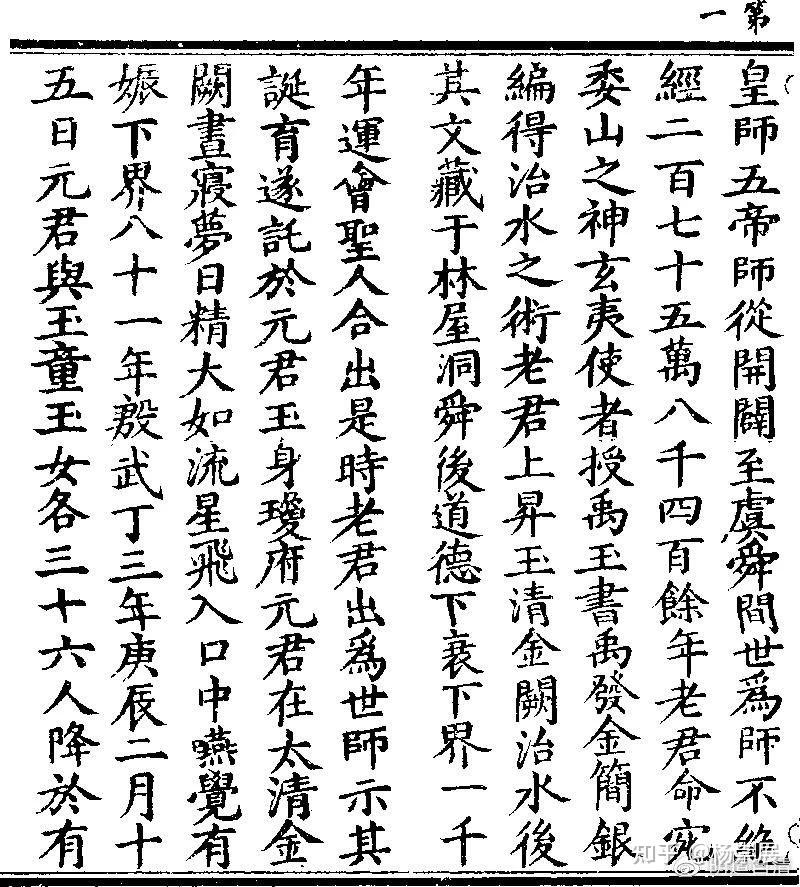 第一
皇師五帝師從開闢至虞舜間世爲師不絶
經二百七十五萬八千四百餘年老君命宛
委山之神玄夷使者授禹玉書禹發金簡銀
編得治水之術老君上昇玉清金闕治水後
其文藏于林屋洞舜後道德下衰下界一千
年運會聖人合出是時老君出爲世師示其
誕育遂託於元君玉身瓊府元君在太清金
闕晝寢夢日精大如流星飛入口中嚥覺有
娠下界八十一年殷武丁三年庚辰二月十
五日元君與玉童玉女各三十六人降於有
知乎